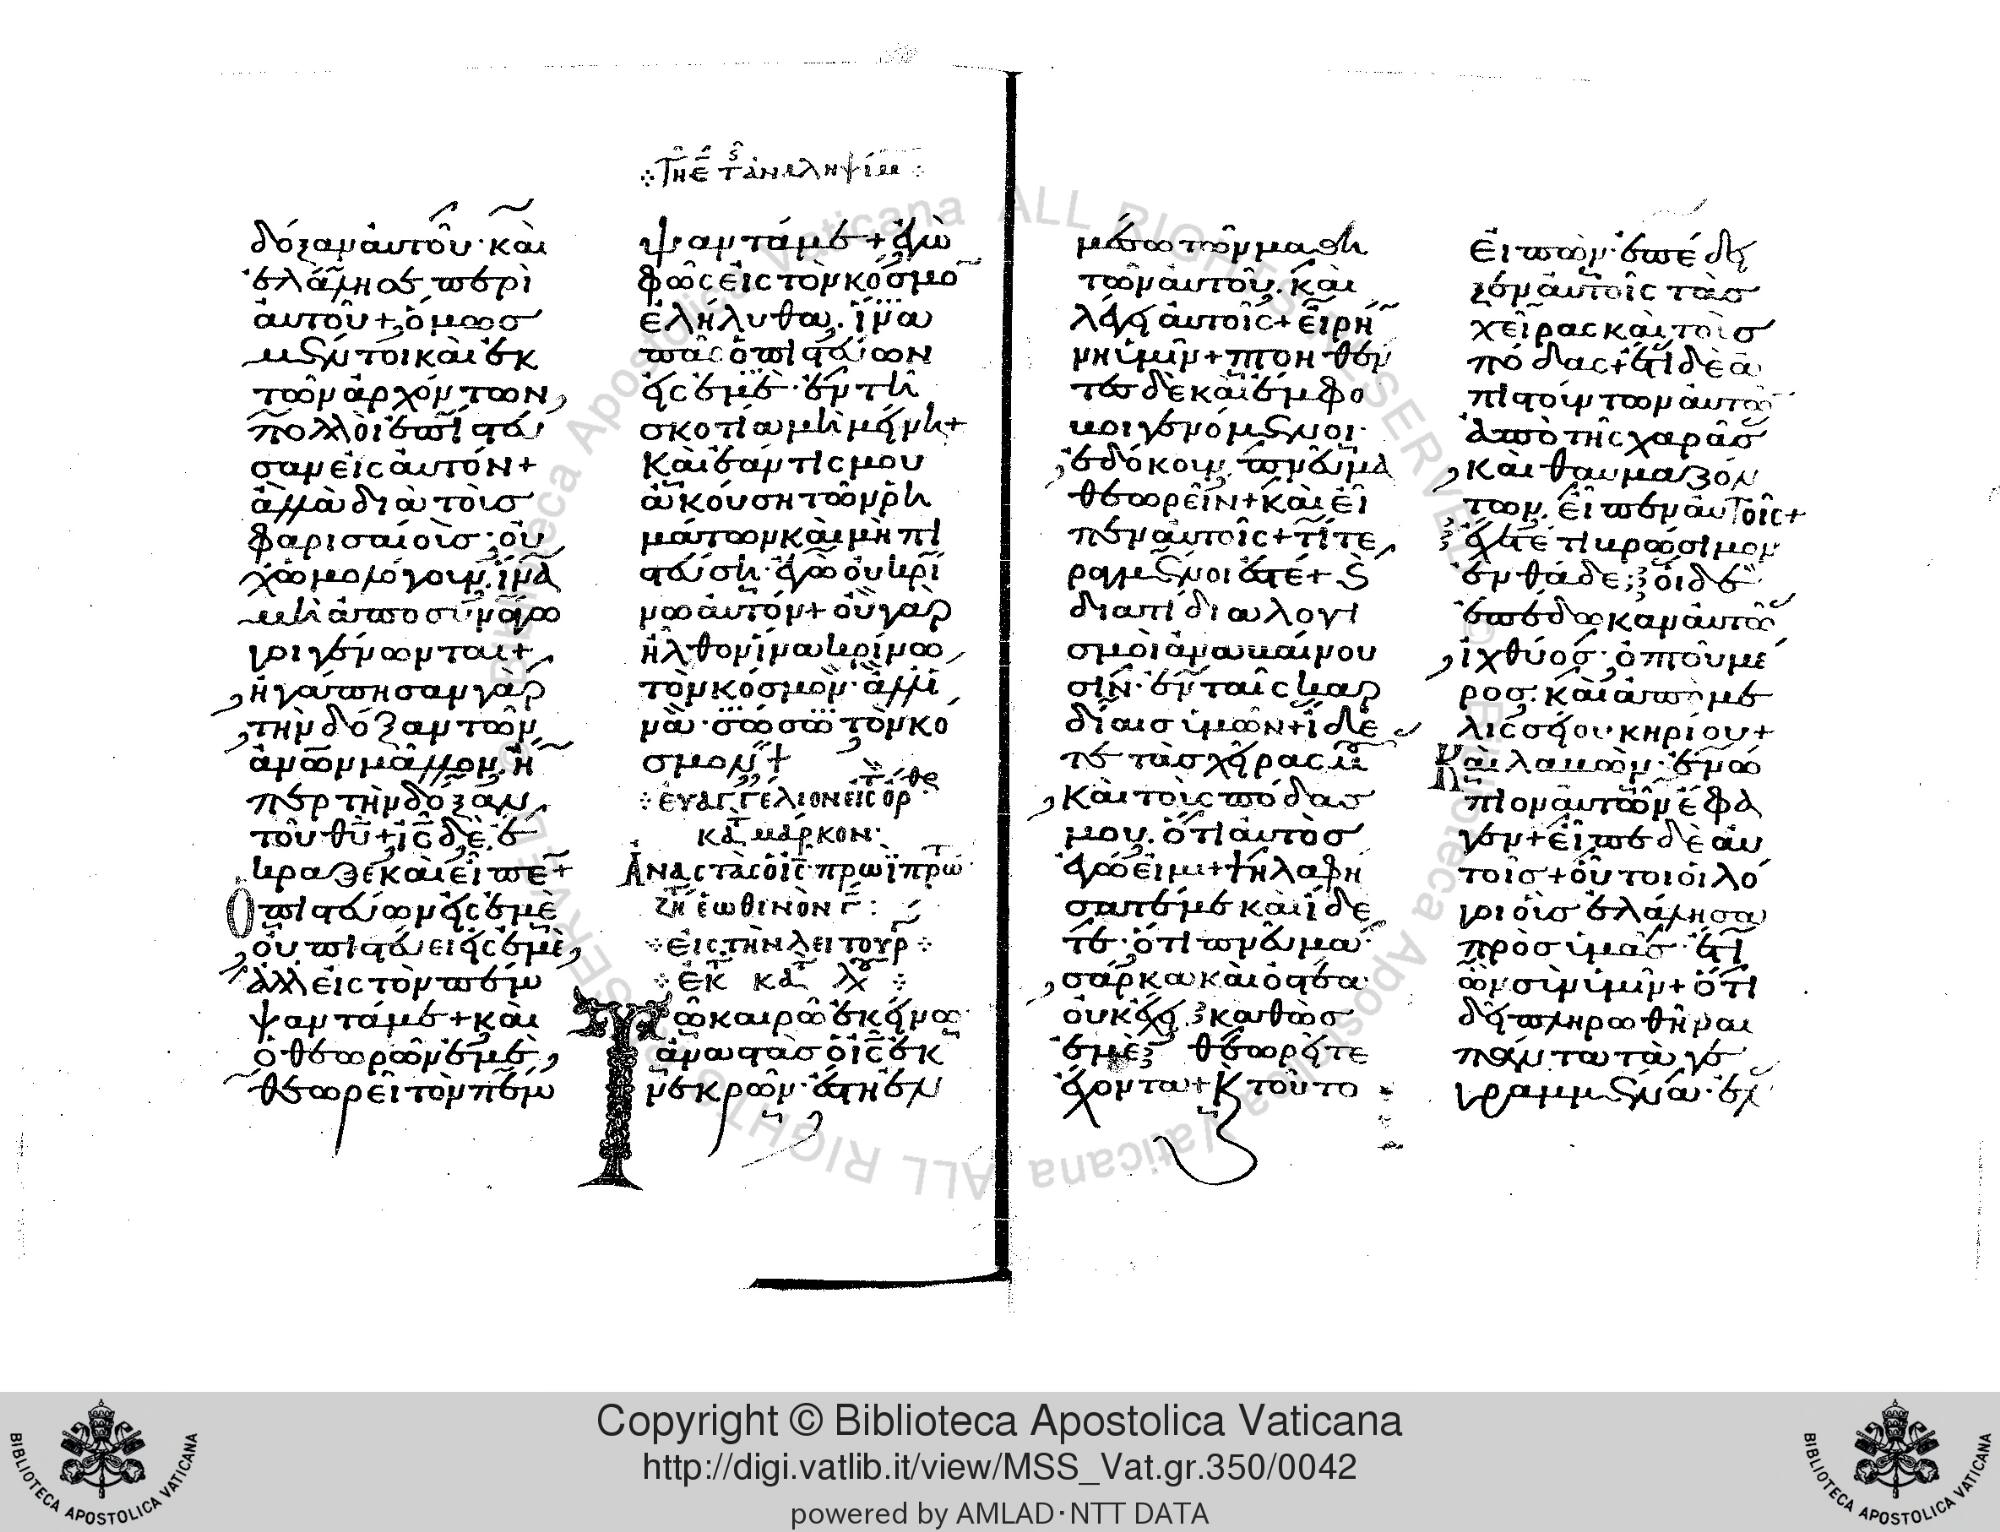 Τῆ ε̄ τ ἀναλήψεω
δόξαν αὐτοῦ· καὶ
ἐλάλησε περὶ
αὐτοῦ + ὅμως
μέντοι καὶ ἐκ
τῶν ἀρχόντων
πολλοὶ ἐπίστευ
σαν εἰς αὐτόν +
ἀλλὰ διὰ τοὺς
φαρισαίους· οὐ
χ ὡμολόγουν, ἵνα
μὴ ἀποσυνάγω
γοι γένωνται +
ἠγάπησαν γὰρ
τὴν δόξαν τῶν
ἀνων μᾶλλον, ἢ
περ τὴν δόξαν
τοῦ θυ + ις δὲ, ἔ
κραξε καὶ εἶπε +
Ὁ πιστεύων εἰς ἐμὲ
οὐ πιστεύει εἰς ἐμὲ,
ἀλλ εἰς τὸν πέμ
ψαντά με + καὶ
ὁ θεωρῶν ἐμὲ,
θεωρεῖ τὸν πέμ
ψαντά με + ἐγὼ
φῶς εἰς τὸν κόσμο
ἐλήλυθα, ἵνα
πᾶς ὁ πιστεύων
εἰς ἐμὲ· ἐν τῆ
σκοτία μὴ μείνη +
Καὶ ἐάν τις μου
ἀκούση τῶν ῥη
μάτων καὶ μὴ πι
στεύση· ἐγὼ οὐ κρί
νω αὐτόν + οὐ γὰρ
ἦλθον ἵνα κρίνω
τὸν κόσμον· ἀλλ ἵ
να· σώσω τὸν κό
σμον +
εὐαγγέλιον εἰς ὄρθ
κατ μάρκον·
Ἀναστὰς ὁ ις πρωῒ πρώ
ζή ἑωθινὸν γ:
εἰς τὴν λειτουργ
ἐκ κατ λχ
Τῶ καιρῶ ἐκείνω·
ἀναστὰς ὁ ις ἐκ
νεκρῶν· ἔστη ἐν
μέσω τῶν μαθη
τῶν αὐτοῦ, καὶ
λέγει αὐτοῖς + εἰρή
νη ὑμῖν + πτοηθέν
τες δὲ καὶ ἔμφο
βοι γενόμενοι·
ἐδόκουν πνεῦμα
θεωρεῖν + καὶ εἶ
πεν αὐτοῖς + τί τε
ραγμένοι ἐστέ + Καὶ
διατί διαλογι
σμοὶ ἀναβαίνου
σιν· ἐν ταῖς καρ
δίαις ὑμῶν + ἴδε
τε τὰς χεῖρας μου
Καὶ τοὺς πόδας
μου, ὅτι αὐτὸς
ἐγώ εἰμι + ψηλαφή
σατέ με καὶ ἴδε
τε· ὅτι πνεῦμα·
σάρκα καὶ ὀστέα·
οὐκ ἔχει, καθὼς
ἐμὲ θεωρεῖτε
ἔχοντα + Κ τοῦτο
εἰπὼν· ἐπέδει
ξεν αὐτοῖς τὰς
χεῖρας καὶ τοὺς
πόδας + ἔτι δὲ ἀ
πιστούντων αὐτῶν
ἀπὸ τῆς χαρᾶς
καὶ θαυμαζόν
των, εἶπεν αὐτοῖς +
ἔχετέ τι βρώσιμον
ἐνθάδε; οἱ δὲ
ἐπέδωκαν αὐτῶ
ἰχθύος ὀπτοῦ μέ
ρος, καὶ ἀπὸ με
λισσείου κηρίου +
Καὶ λαβὼν· ἐνώ
πιον αὐτῶν ἔφα
γεν + εἶπε δὲ αυ
τοῖς + οὗτοι οἱ λό
γοι οὓς ἐλάλησα
πρὸς ὑμᾶς· ἔτι
ὢν σὺν ὑμῖν + ὅτι
δεῖ πληρωθῆναι
πάντα τὰ γε
γραμμένα· ἐν
Copyright © Biblioteca Apostolica Vaticana
http://digi.vatlib.it/view/MSS_Vat.gr.350/0042
powered by AMLAD·NTT DATA
BIBLIOTECA APOSTOLICA VATICANA
BIBLIOTECA APOSTOLICA VATICANA
© Biblioteca Apostolica Vaticana ALL RIGHTS RESERVED
© Biblioteca Apostolica Vaticana ALL RIGHTS RESERVED